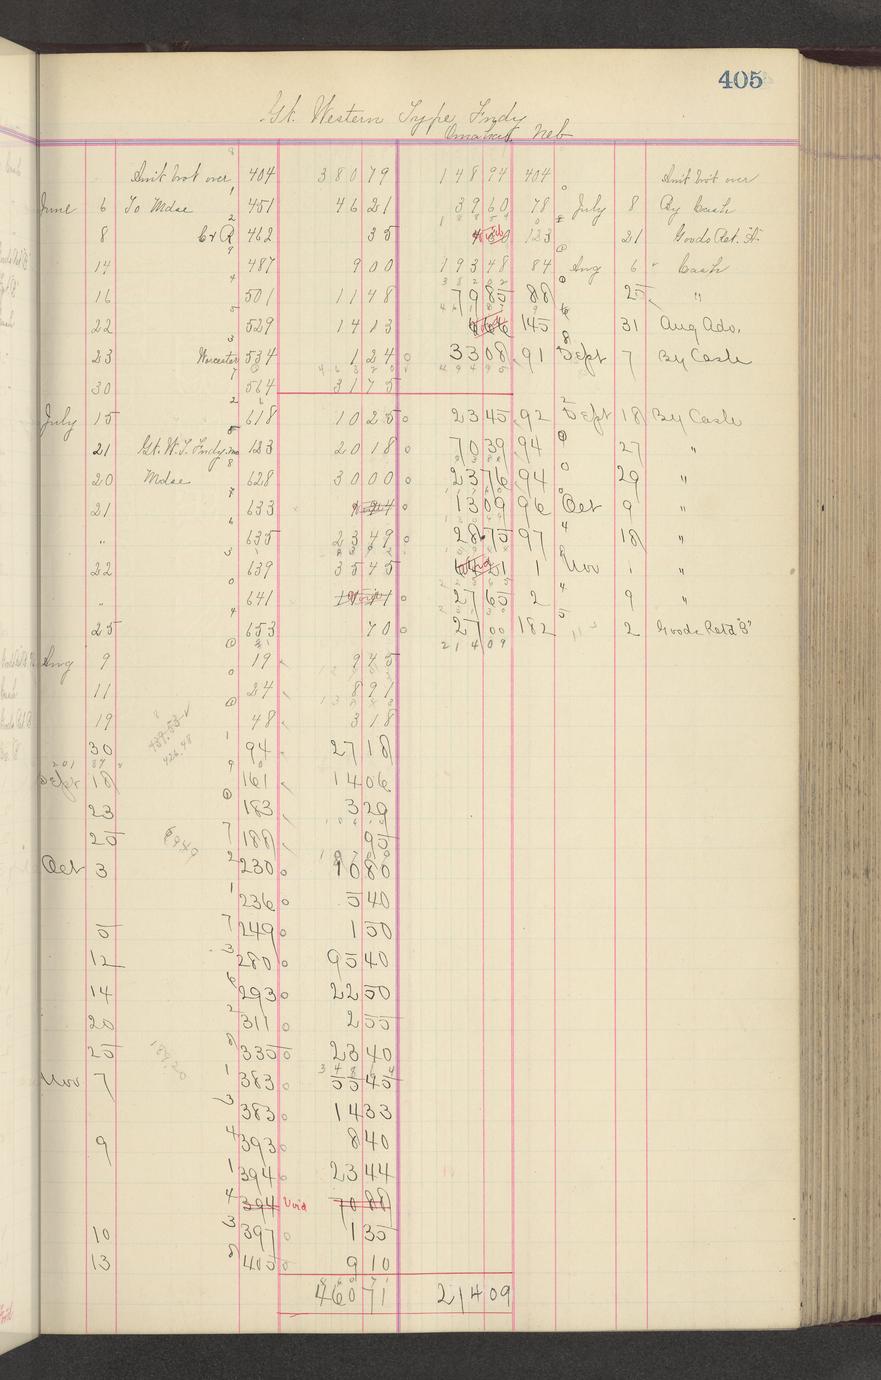 405
Gt. Western Type Fndy
Omaha, Neb
Am't brot over 404 380 79 148 94 404 Am't brot over
June 6 To Mdse 451 46 21 39 60 78 July 8 By Cash
8 462 35 123 21 Goods Ret. "A"
14 487 9 00 193 48 84 Aug 6 " Cash
16 501 11 48 79 85 88 25 "
22 529 14 13 145 31 Aug Adv.
23 Worcester 534 1 24 33 08 91 Sept 7 By Cash
30 564 31 75
July 15 618 10 25 23 45 92 Sept 18 By Cash
21 Gt. W. T. Fndy 123 20 18 70 39 94 27 "
20 Mdse 628 30 00 23 76 94 29 "
21 633 13 09 96 Oct 9 "
" 635 23 49 28 75 97 18 "
22 639 35 45 1 Nov 1 "
" 641 27 65 2 9 "
25 653 70 27 00 182 2 Goods Retd "B"
21 4 09
Aug 9 19 9 45
11 24 8 91
19 48 3 18
30 94 27 18
Sept 18 161 14 06
23 183 3 29
25 188 95
Oct 3 230 10 80
236 5 40
5 249 1 50
12 280 95 40
14 293 22 50
20 311 2 55
25 335 23 40
Nov 7 383 55 45
383 14 33
9 393 8 40
394 23 44
394 Void 70 88
10 397 1 35
13 405 9 10
460 71 214 09